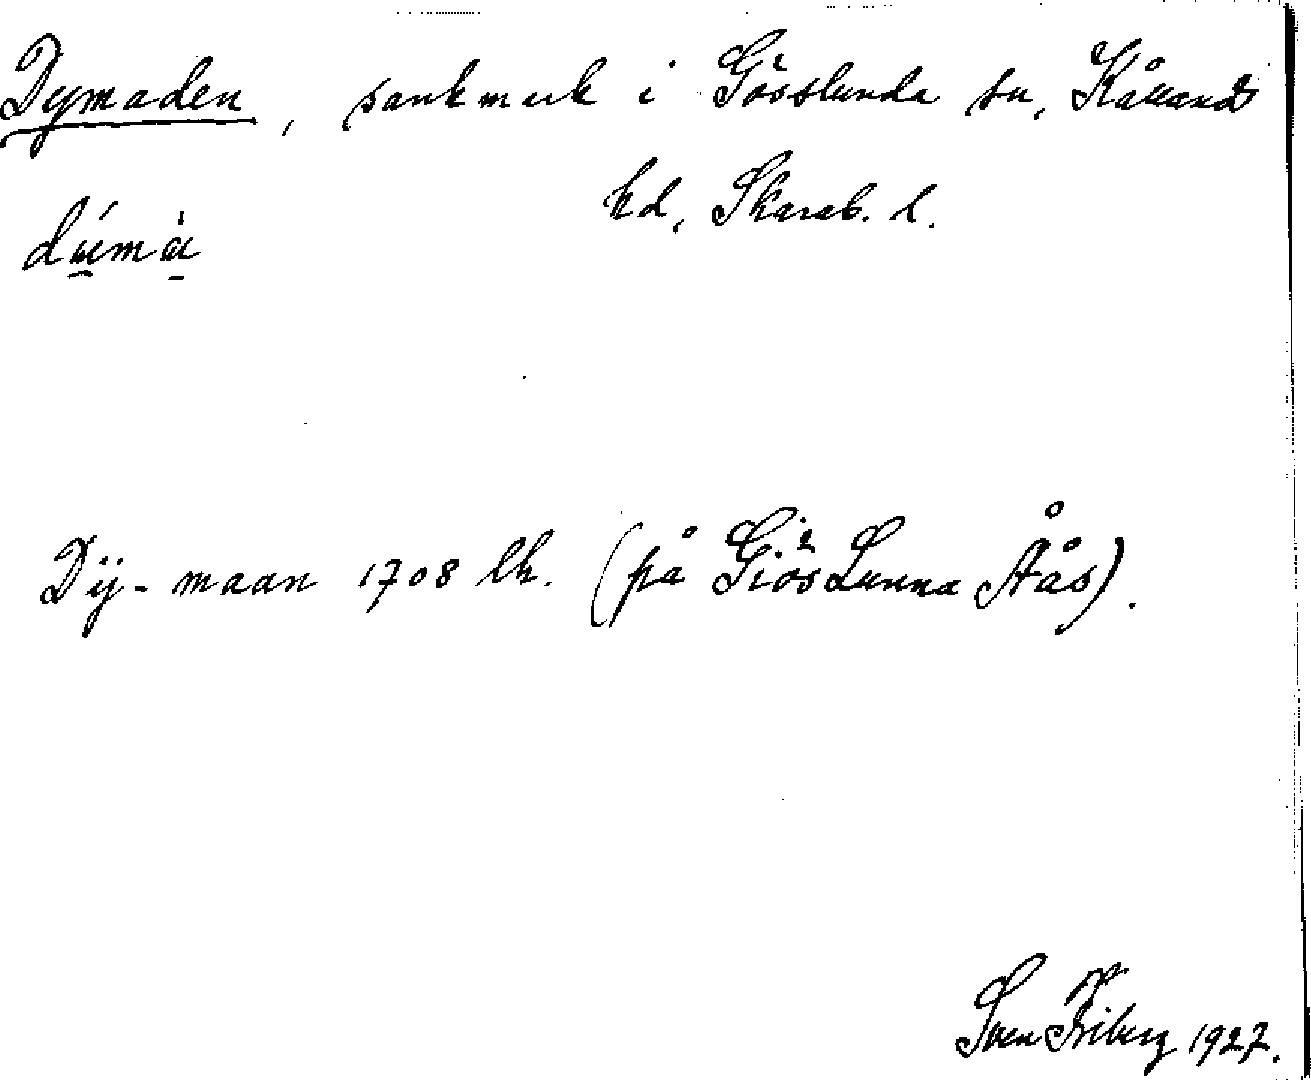 Dymaden, sankmark i Gösslunda sn, Kållands
hd, Skarab. l.
Dÿ-maan 1708 lh. (på GiösLunna Åås).
Sven Friberg 1927.